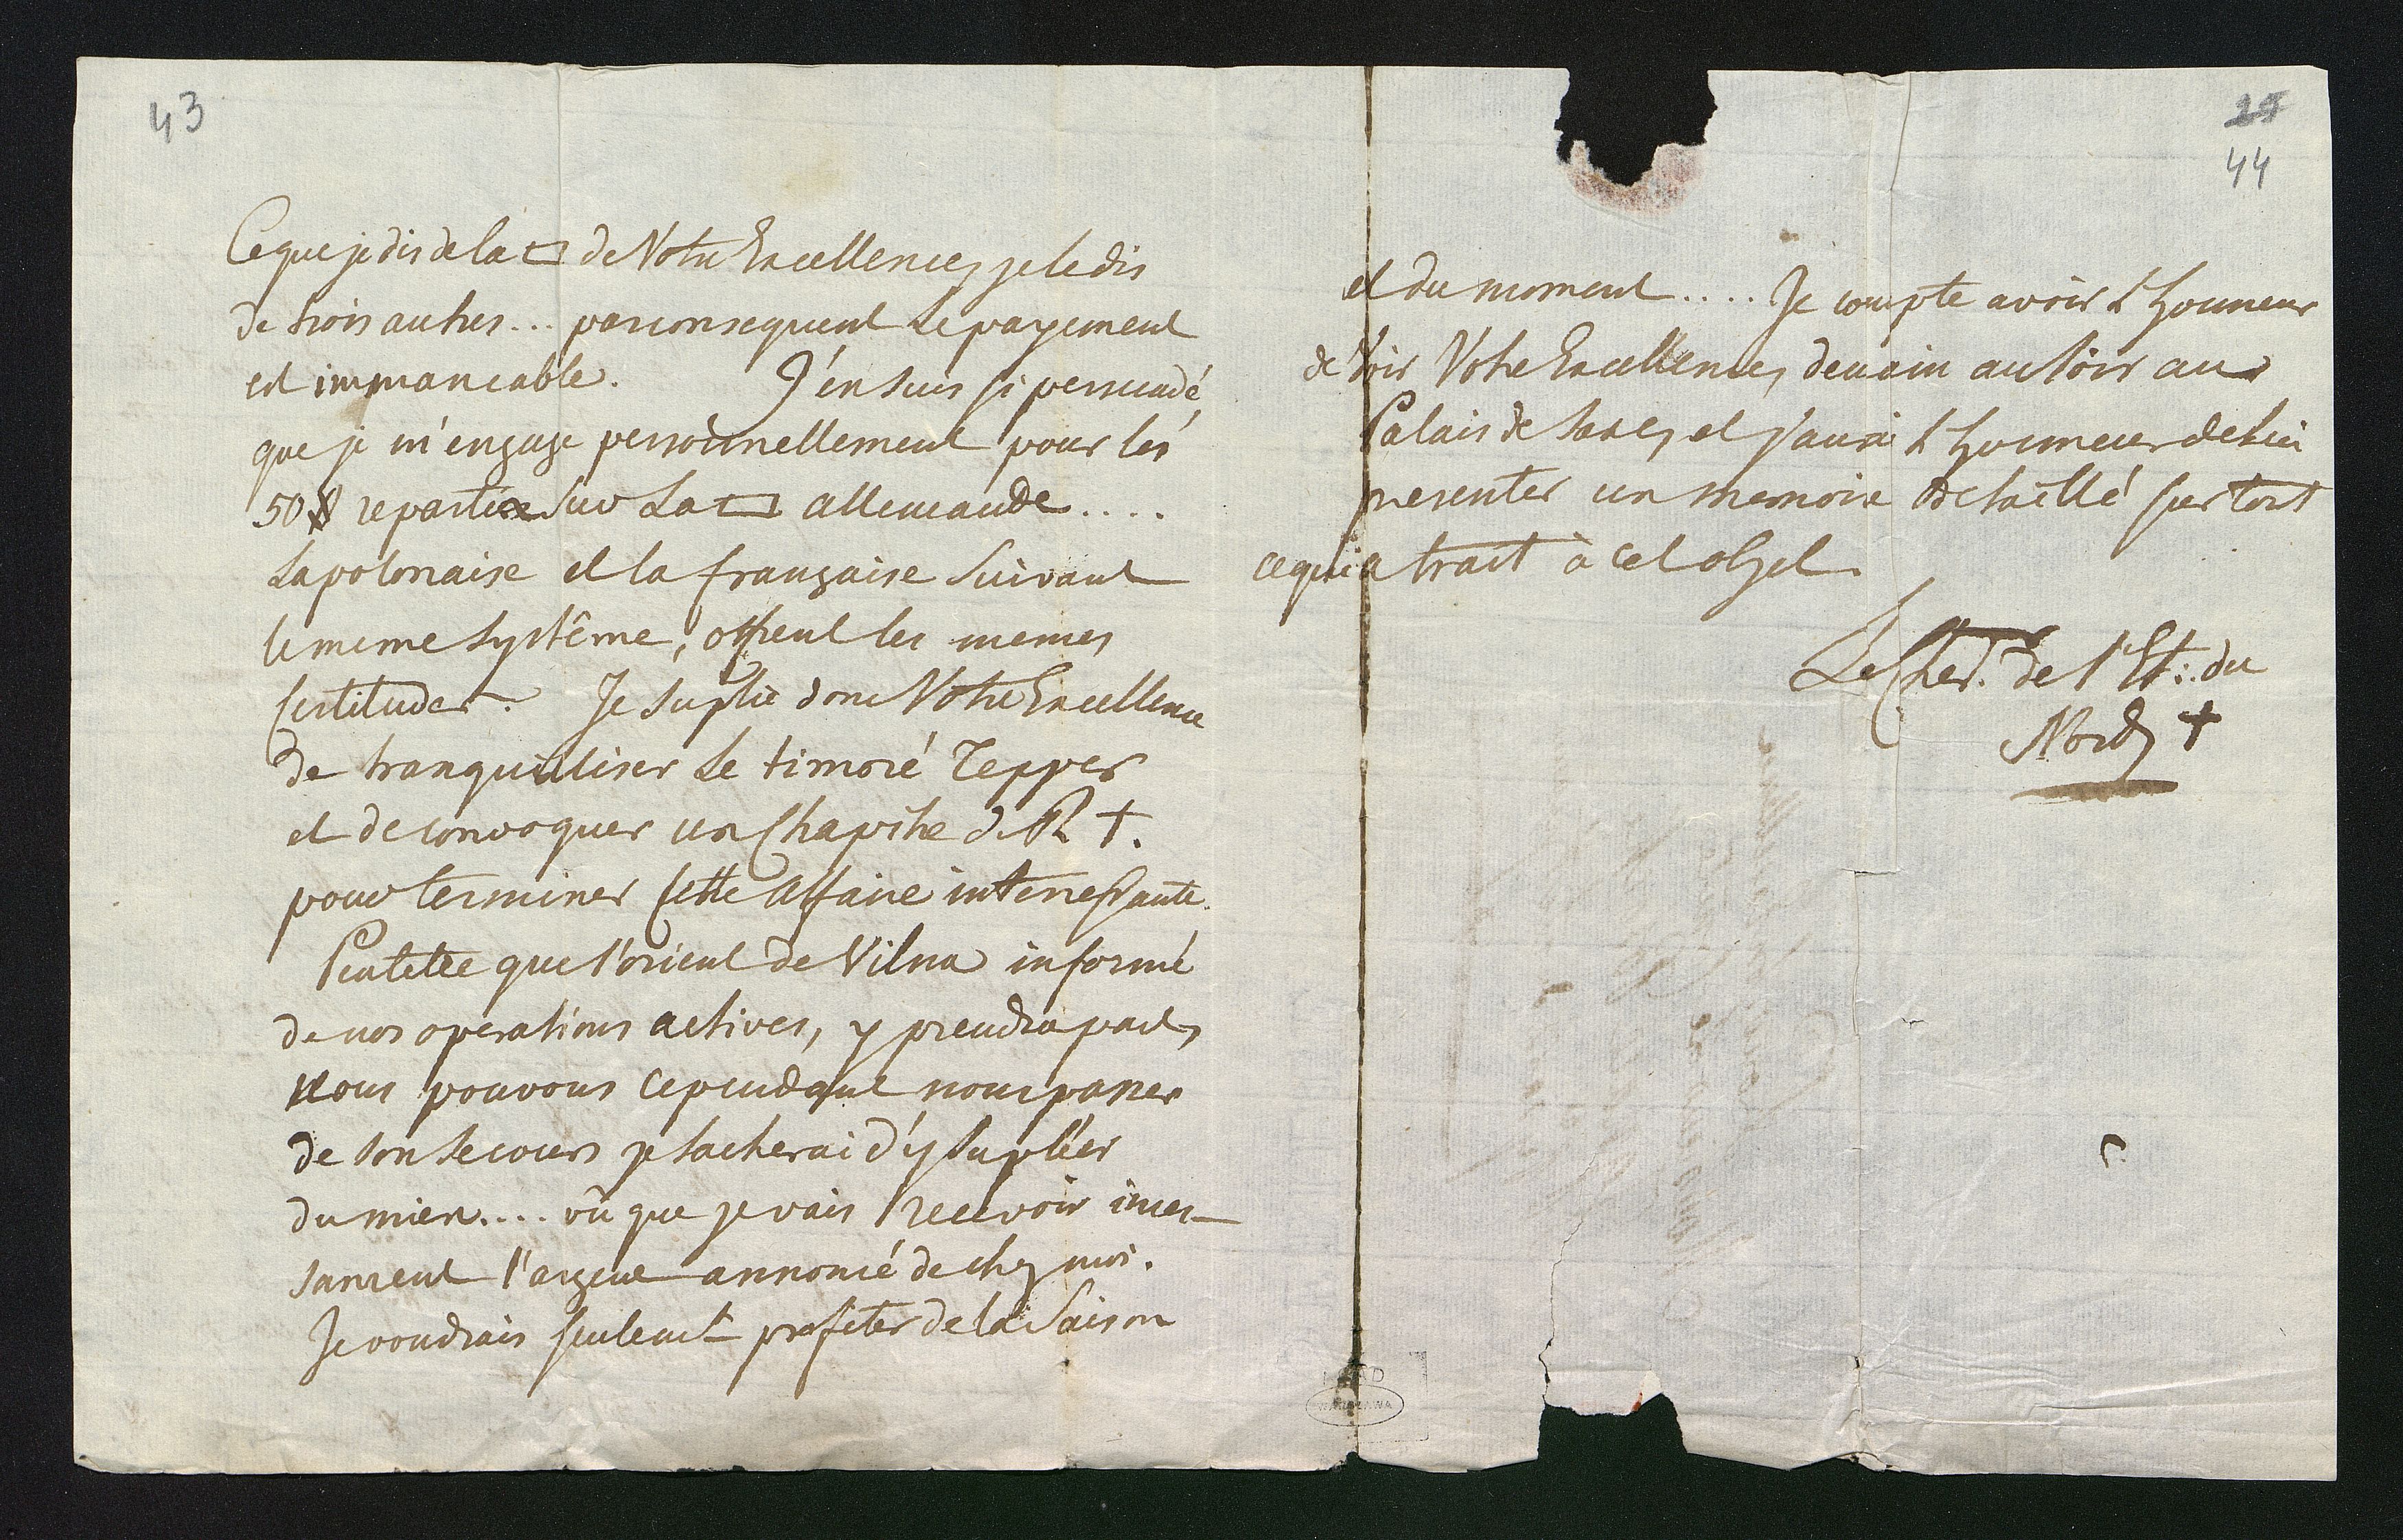 43
Ce que je dis de la ▭ de Votre Excellence, je le dis
de trois autres... par consequent le payement
est immancable. J'en suis si persuadé,
que je m'engage personnellement pour les
50 # repartie sur la ▭ allemande....
La polonaise et la française suivant
le meme systême, offrent les memes
certitudes. Je suplie donc Votre Excellence
de tranquiliser le timoré Tepper
et de convoquer un Chapitre d. R †.
pour terminer cette affaire interressante.
Peutetre que l'orient de Vilna informé
de nos operations actives, y prendra part,
nous pouvons cependant nous passer
de son secours je tacherai d'y supléer
du mien.... vû que je vais recevoir inces-
sament l'argent annoncé de chez moi.
Je voudrais seulemt profiter de la saison
44
et du moment.... Je compte avoir l'honneur
de voir Votre Excellence, demain au soir au
Palais de Saxe, et j'aurai l'honneur de lui
presenter un memoire detaillé sur tout
ce qui a trait à cet objet.
Le Cher. de l'Et: du
Nord †
WARSZAWA